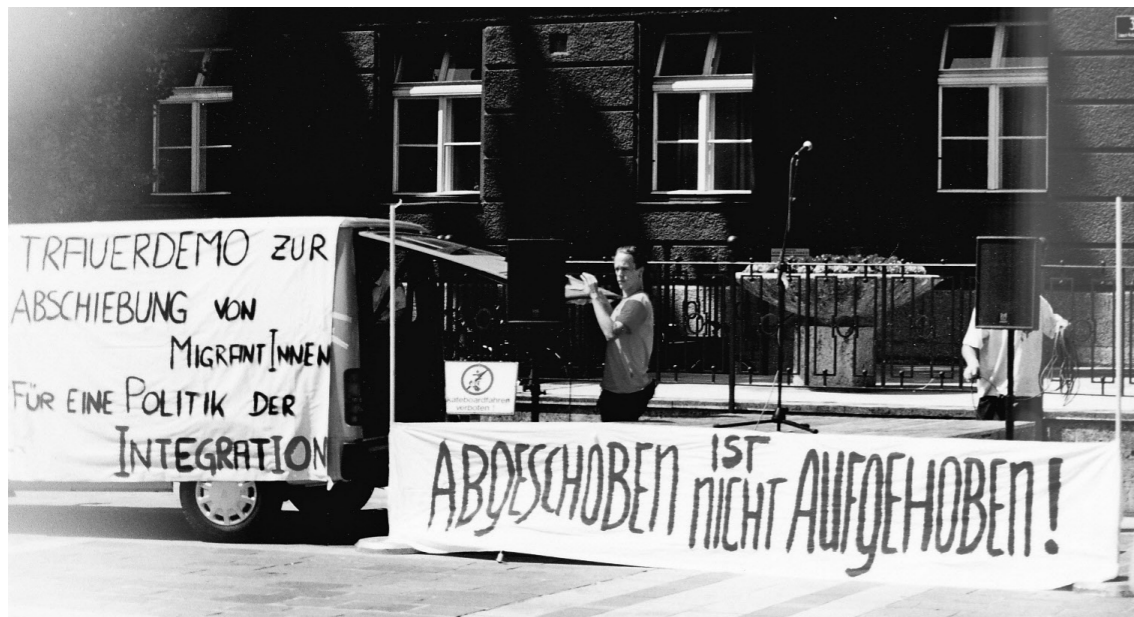 TRAUERDEMO ZUR
ABSCHIEBUNG VON
MIGRANTINNEN
FÜR EINE POLITIK DER
INTEGRATION
Skateboardfahren
verboten!
ABGESCHOBEN IST
NICHT AUFGEHOBEN!